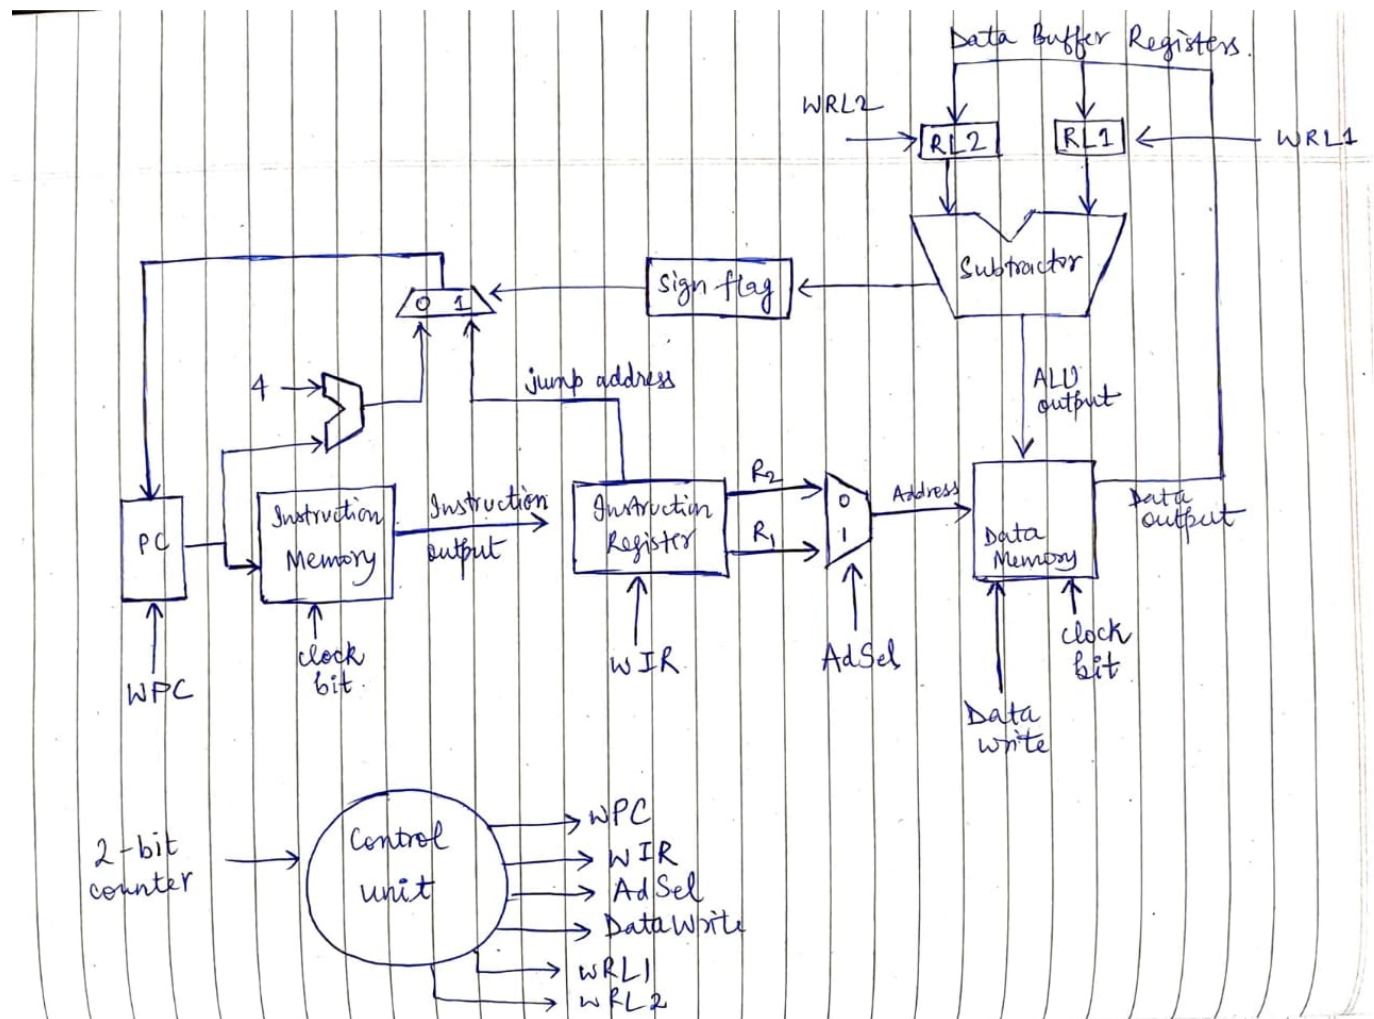 Data Buffer Registers.
WRL2
RL2
RL1
WRL1
Subtractor
Sign flag
0 1
4
jump address
ALU
output
PC
Instruction
Memory
Instruction
output
Instruction
Register
R2
R1
0
1
Address
Data
Memory
Data
output
WPC
clock
bit.
WIR
AdSel
Data
write
clock
bit
2-bit
counter
Control
unit
WPC
WIR
AdSel
DataWrite
WRL1
WRL2